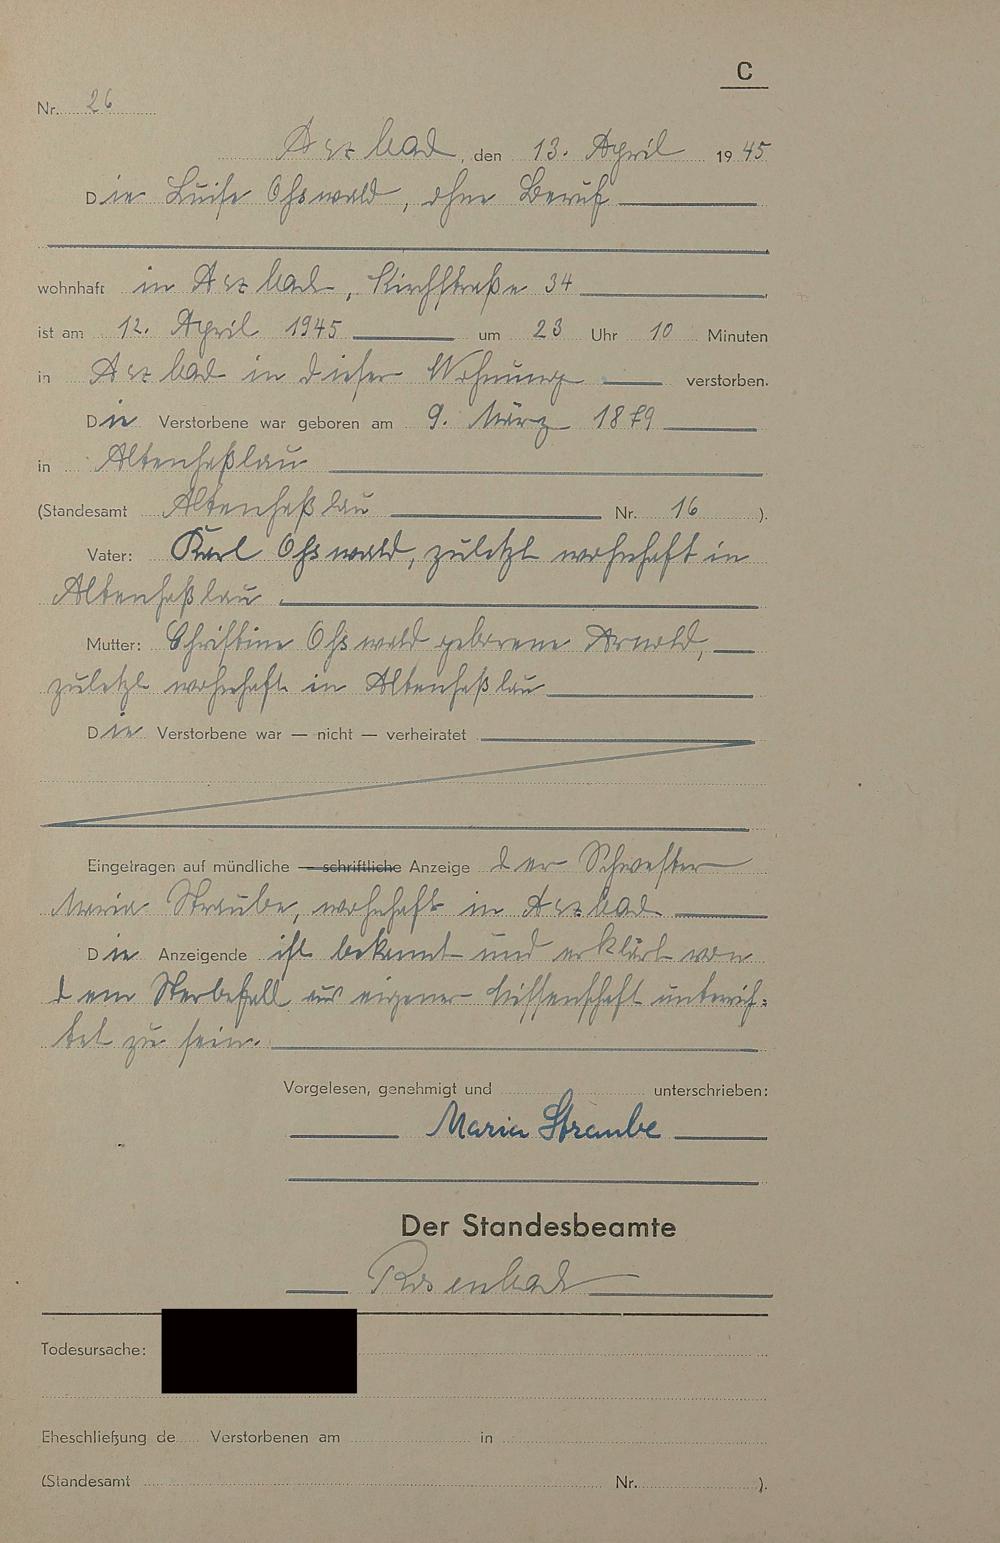 C
Nr. 26
, den 13. April 1945
Die Luise Oßwald, ohne Beruf
wohnhaft in , Kirchstraße 34
ist am 12. April 1945 um 23 Uhr 10 Minuten
in in dieser Wohnung verstorben.
Die Verstorbene war geboren am 9. März 1879
in Altenhaßlau
(Standesamt Altenhaßlau Nr. 16 ).
Vater: Karl Oßwald, zuletzt wohnhaft in
Altenhaßlau.
Mutter: Christine Oßwald geborene Arnold,
zuletzt wohnhaft in Altenhaßlau
Die Verstorbene war — nicht — verheiratet
Eingetragen auf mündliche — schriftliche Anzeige der Schwester
Maria Straube, wohnhaft in
Die Anzeigende ist bekannt und erklärt von
dem Sterbefall aus eigener Wissenschaft unterrich-
tet zu sein.
Vorgelesen, genehmigt und unterschrieben:
Maria Straube
Der Standesbeamte
Rosenbach
Todesursache:
Eheschließung de Verstorbenen am in
(Standesamt Nr. ).